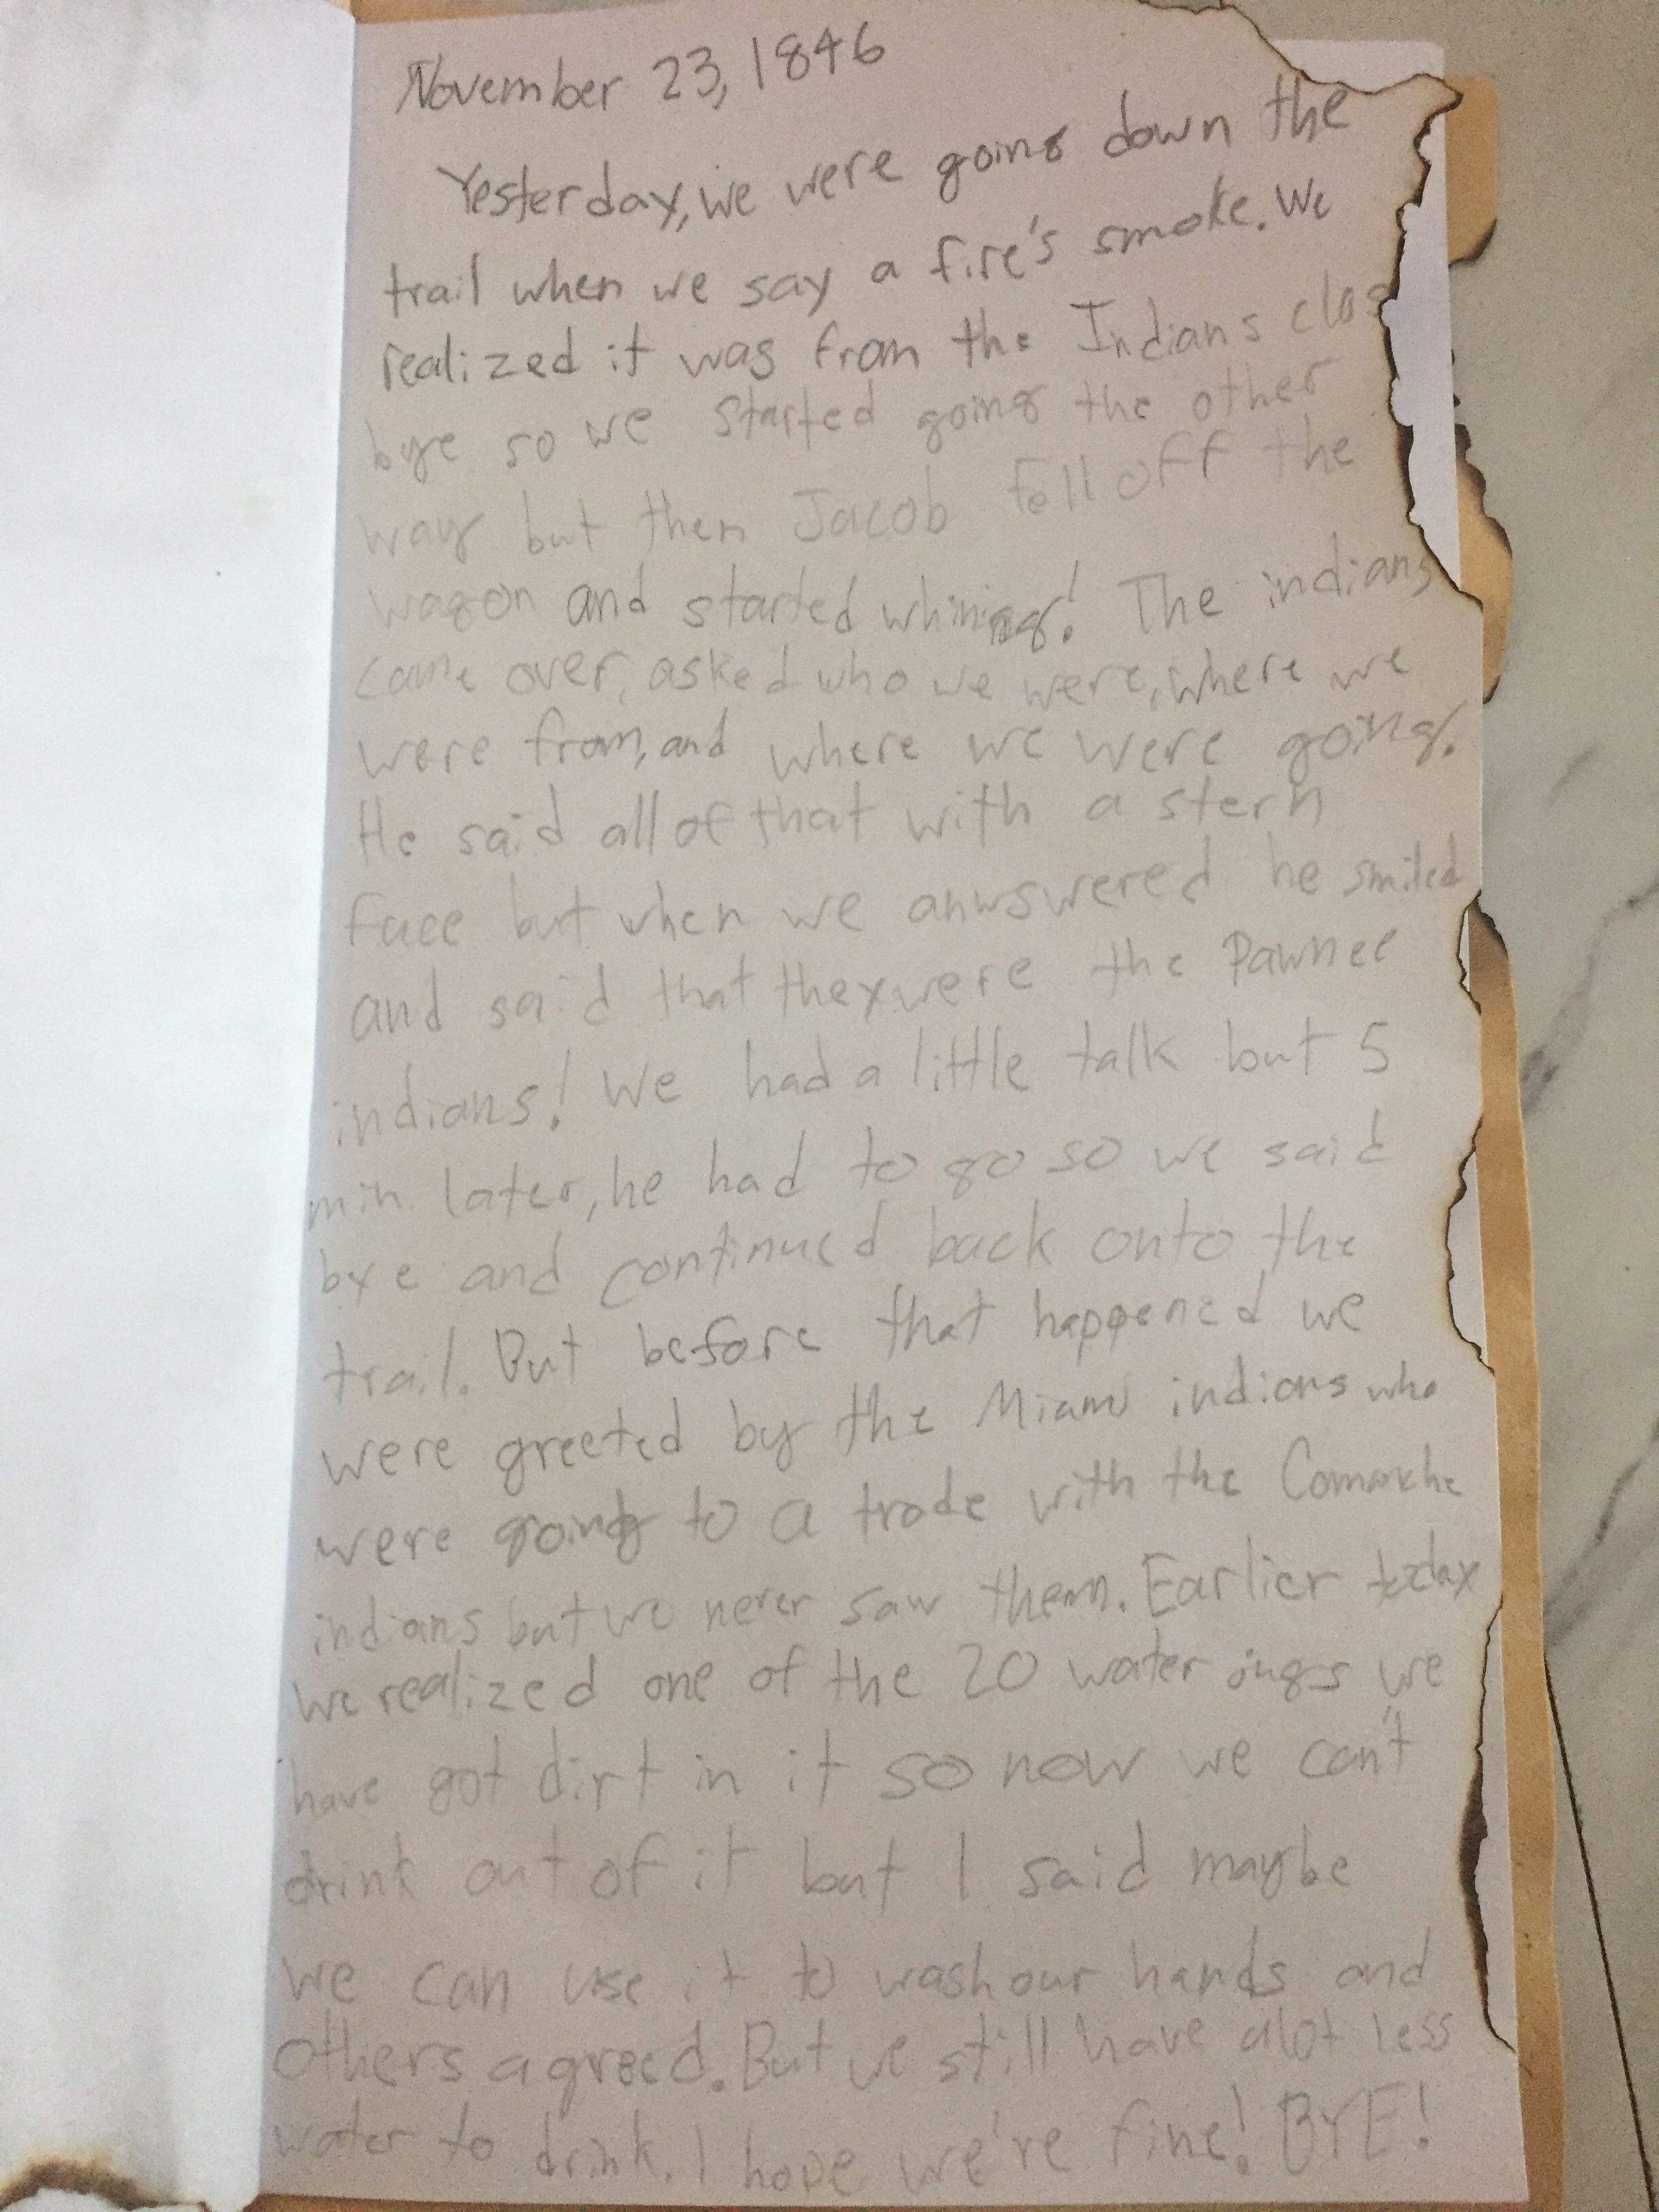 November 23, 1846
Yesterday, we were going down the
trail when we say a fire's smoke. We
realized it was from the Indians clos
bye so we started going the other
way but then Jacob fell off the
wagon and started whining! The indians
came over, asked who we were, where we
were from, and where we were going.
He said all of that with a stern
face but when we anwswered he smiled
and said that they were the Pawnee
indians! We had a little talk but 5
min. later, he had to go so we said
bye and continued back onto the
trail. But before that happened we
were greeted by the Miami indians who
were going to a trade with the Comanche
indians but we never saw them. Earlier today
we realized one of the 20 water jugs we
have got dirt in it so now we can't
drink out of it but I said maybe
we can use it to wash our hands and
others agreed. But we still have alot less
water to drink. I hope we're fine! BYE!